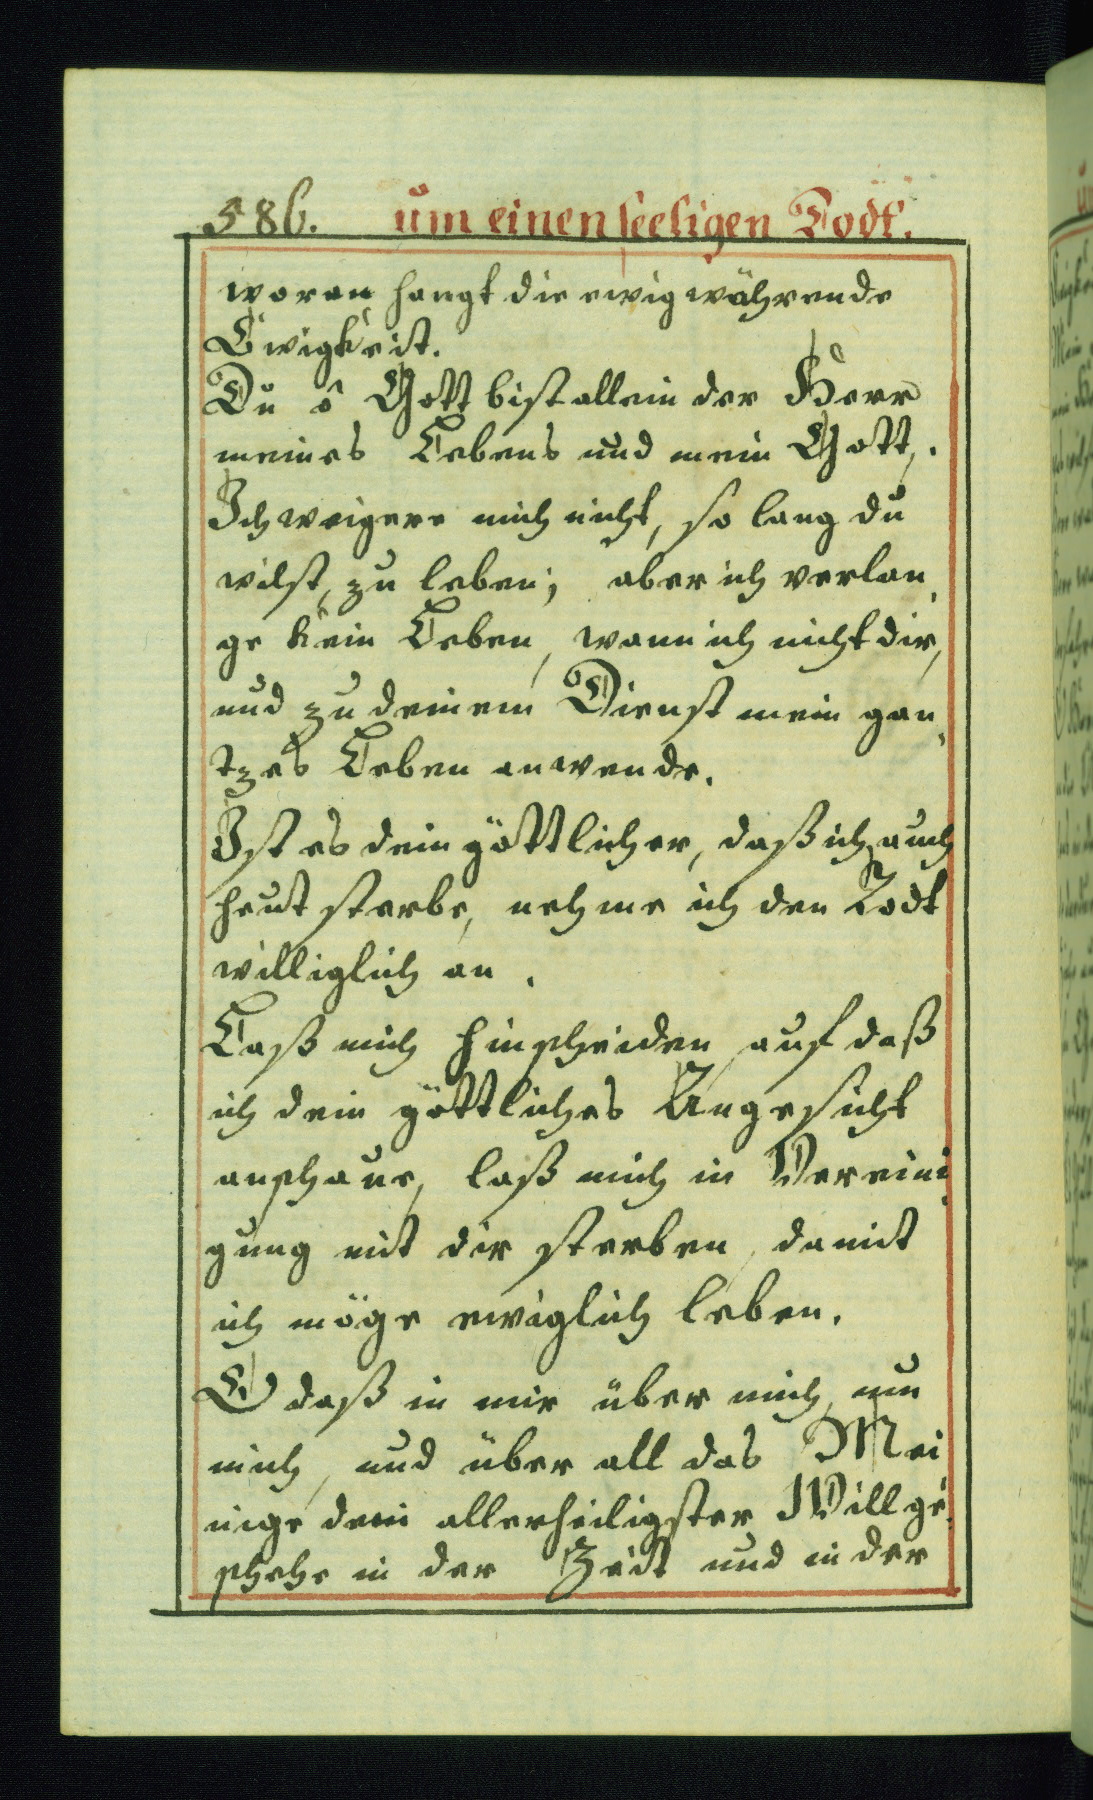 586. um einen seeligen Todt.
woran hangt die ewig währende
Ewigkeit.
Du ô Gott bist allein der Herr
meines Lebens und mein Gott,.
Ich weigere mich nicht, so lang du
wilst, zu leben; aber ich verlan,
ge kein Leben, wann ich nicht dir,
und zu deinem Dienst mein gan,
tzes Leben anwende.
Ist es dein göttlicher, daß ich auch
heut sterbe, nehme ich den Todt
williglich an.
Laß mich hinscheiden, auf daß
ich dein göttliches Angesicht
anschaue, laß mich in Vereini,
gung mit dir sterben, damit
ich möge ewiglich leben.
O daß in mir über mich, um
mich, und über all das Mei
nige dein allerheiligster Will ge,
schehe in der Zeit und in der